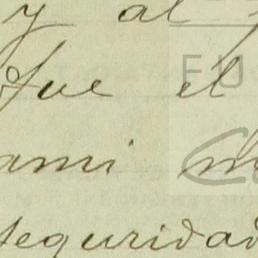 y al
fue el
ami
seguridad
FU